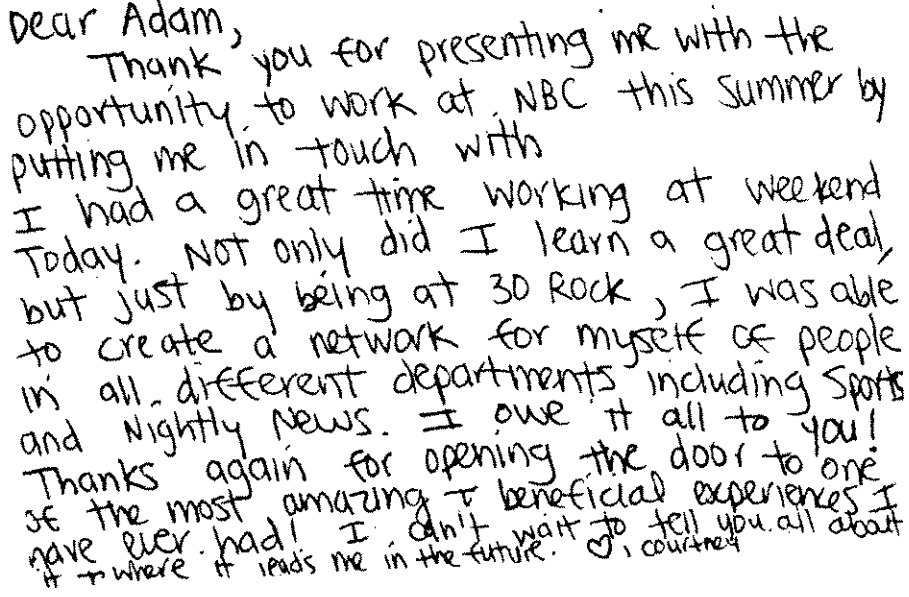 Dear Adam,
Thank you for presenting me with the
opportunity to work at NBC this summer by
putting me in touch with
I had a great time working at weekend
Today. Not only did I learn a great deal,
but just by being at 30 Rock, I was able
to create a network for myself of people
in all different departments including Sports
and Nightly News. I owe it all to you!
Thanks again for opening the door to one
of the most amazing + beneficial experiences I
have ever had! I can't wait to tell you all about
it + where it leads me in the future. ♡, Courtney